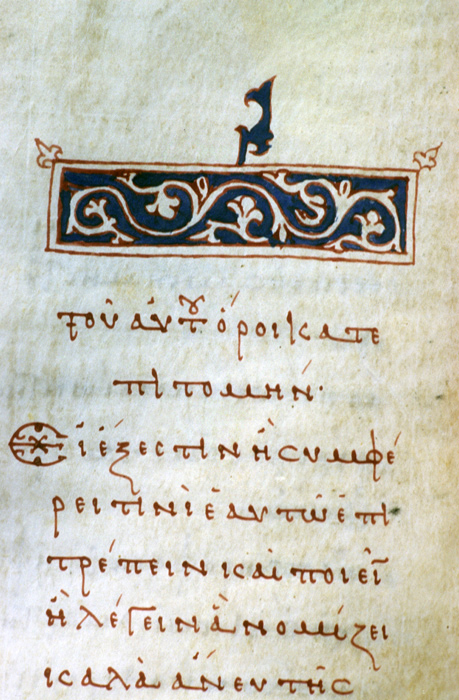 τοῦ ἀυτȣ ὅροι κατε
πιτομήν·
Εἰ ἔξεστιν ἢ συμφέ
ρει τινὶ ἑαυτῶ ἐπι
τρέπειν καὶ ποιεῖ
ἢ λέγειν ἃ νομίζει
καλὰ ἄνευ τῆς